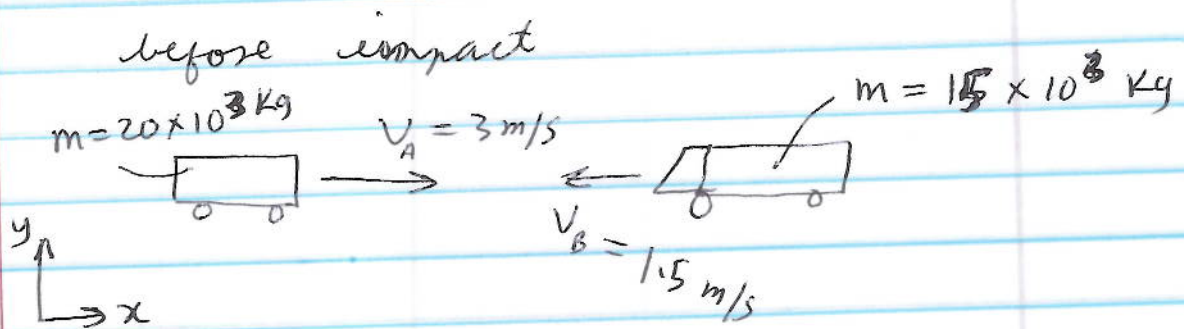 before impact
m = 20 × 10³ Kg
V_A = 3 m/s
m = 15 × 10³ Kg
V_B = 1.5 m/s
y
x